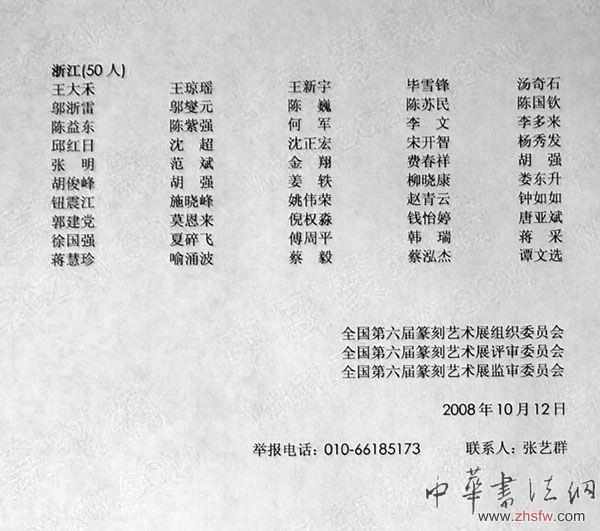 浙江(50人)
王大禾 王琼瑶 王新宇 毕雪锋 汤奇石
邬浙雷 邬燮元 陈巍 陈苏民 陈国钦
陈益东 陈紫强 何军 李文 李多来
邱红日 沈超 沈正宏 宋开智 杨秀发
张明 范斌 金翔 费春祥 胡强
胡俊峰 胡强 姜轶 柳晓康 娄东升
钮震江 施晓峰 姚伟荣 赵青云 钟如如
郭建党 莫恩来 倪权淼 钱怡婷 唐亚斌
徐国强 夏碎飞 傅周平 韩瑞 蒋采
蒋慧珍 喻涌波 蔡毅 蔡泓杰 谭文选
全国第六届篆刻艺术展组织委员会
全国第六届篆刻艺术展评审委员会
全国第六届篆刻艺术展监审委员会
2008年10月12日
举报电话：010-66185173 联系人：张艺群
中華書法網
www.zhsfw.com